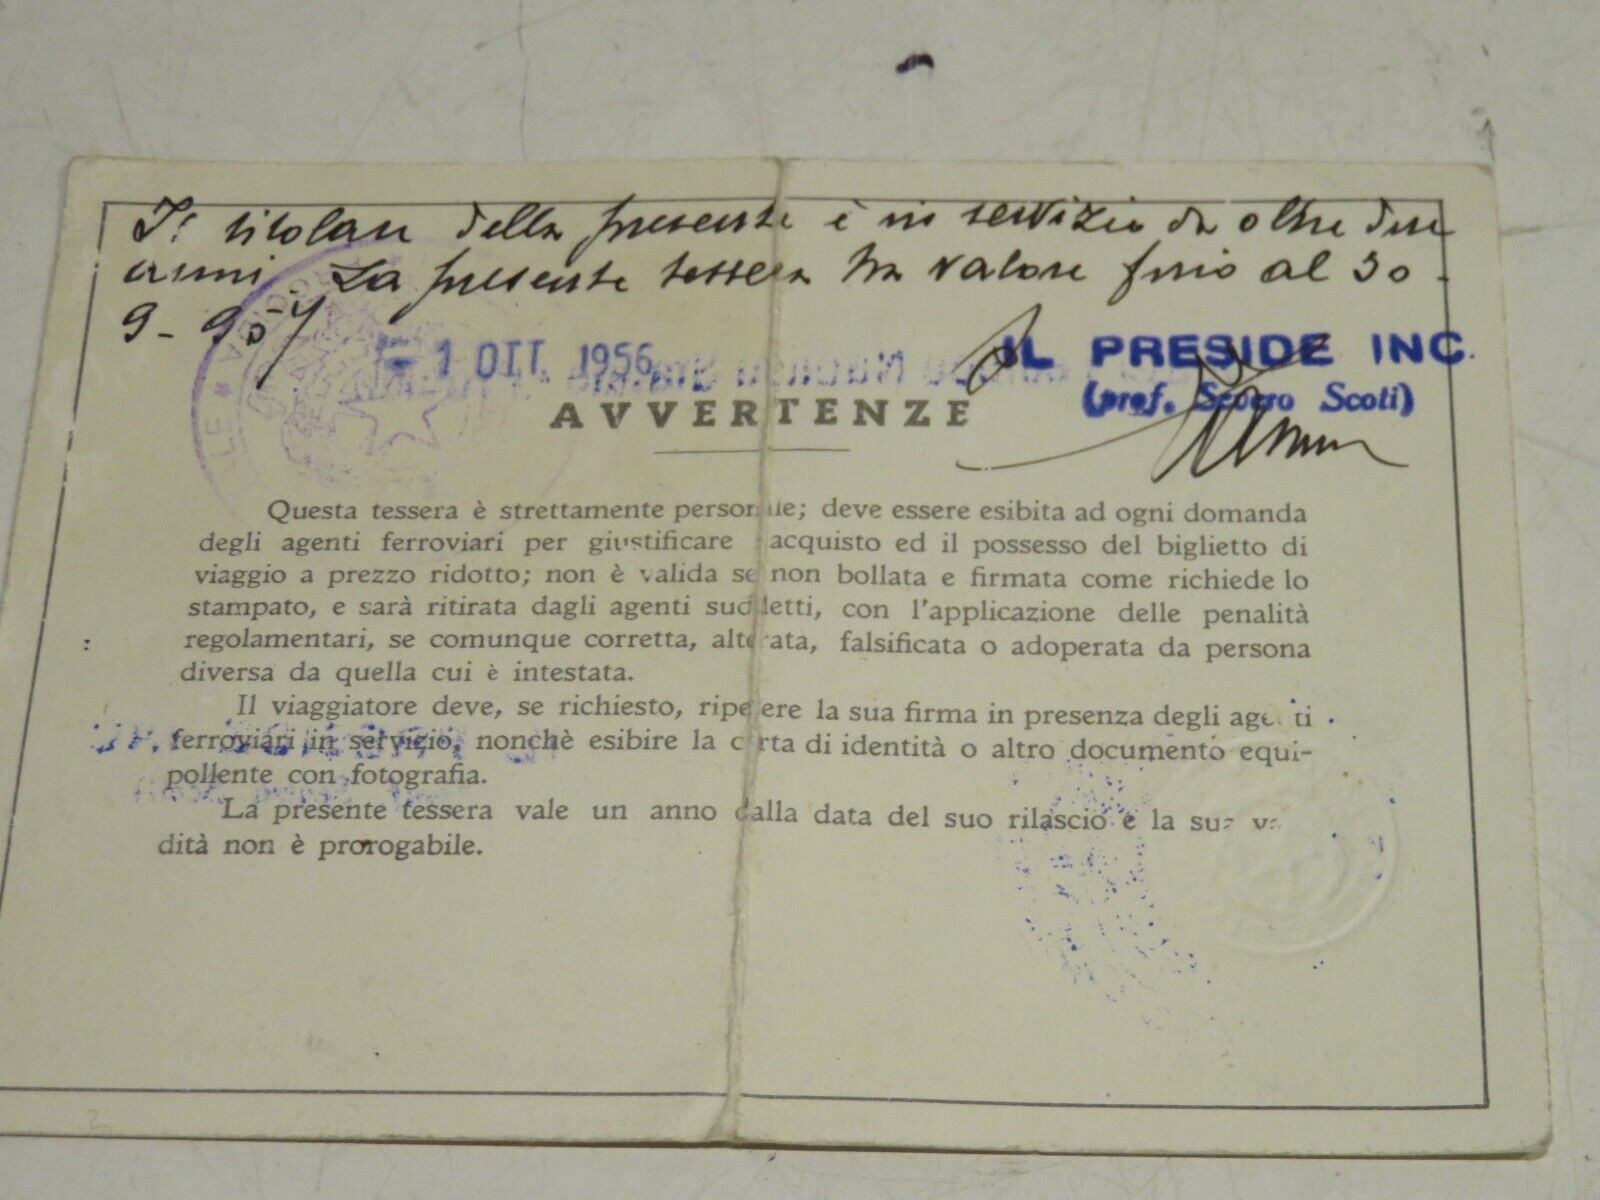 Il titolare della presente è in servizio da oltre due
anni. La presente tessera ha valore fino al 30-
9-957
-1 OTT. 1956
IL PRESIDE INC.
(prof. Scoti)
AVVERTENZE
Questa tessera è strettamente personale; deve essere esibita ad ogni domanda
degli agenti ferroviari per giustificare acquisto ed il possesso del biglietto di
viaggio a prezzo ridotto; non è valida se non bollata e firmata come richiede lo
stampato, e sarà ritirata dagli agenti suddetti, con l'applicazione delle penalità
regolamentari, se comunque corretta, alterata, falsificata o adoperata da persona
diversa da quella cui è intestata.
Il viaggiatore deve, se richiesto, ripetere la sua firma in presenza degli agenti
ferroviari in servizio, nonchè esibire la carta di identità o altro documento equi-
pollente con fotografia.
La presente tessera vale un anno dalla data del suo rilascio e la sua va
dità non è prorogabile.